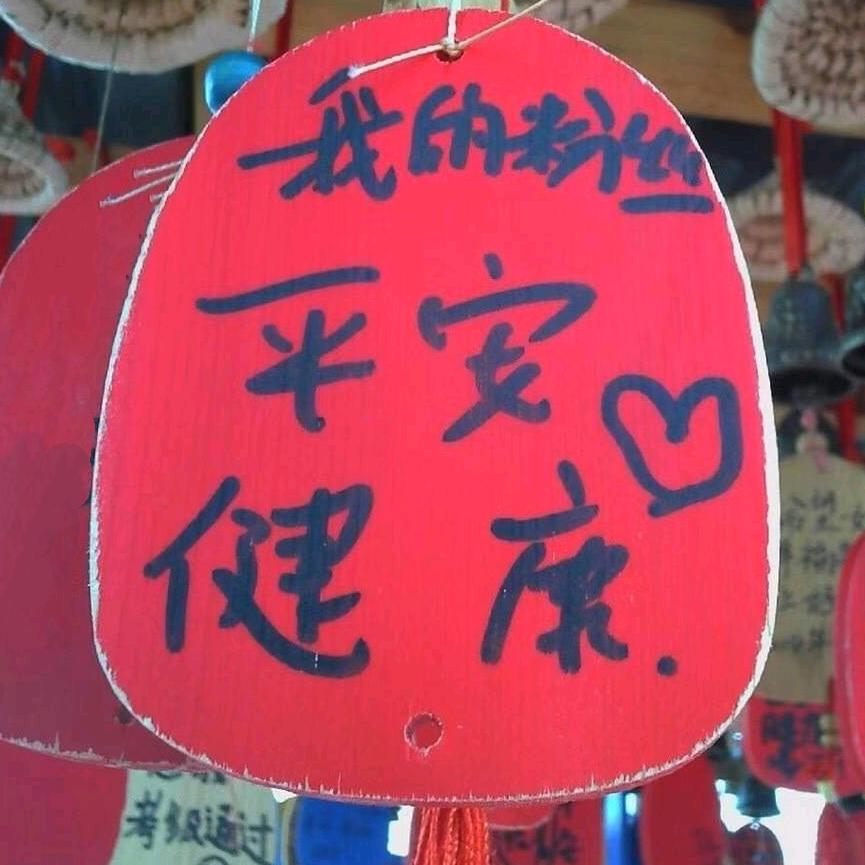 我的粉丝
平安
健康.
考级通过